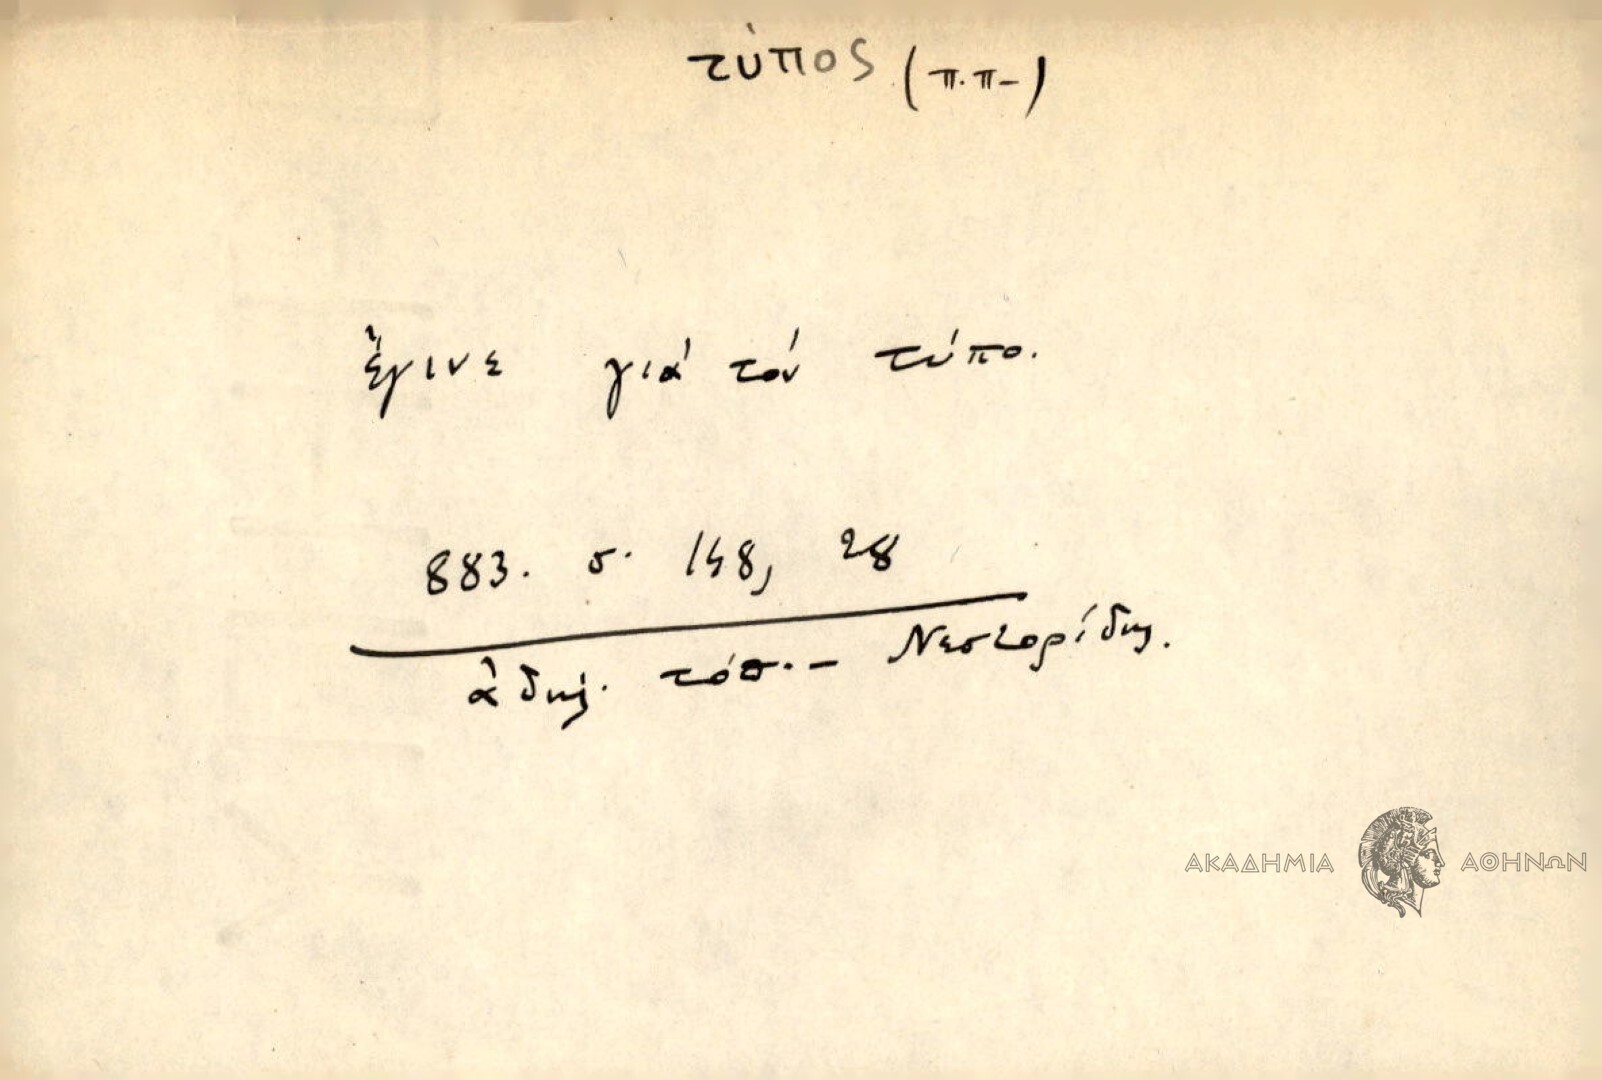 τύπος (π.π-)
ἔγινε γιά τόν τύπο.
883. σ. 148, 28
ἀδηλ. τόπ.- Νεστορίδης.
ΑΚΑΔΗΜΙΑ ΑΘΗΝΩΝ